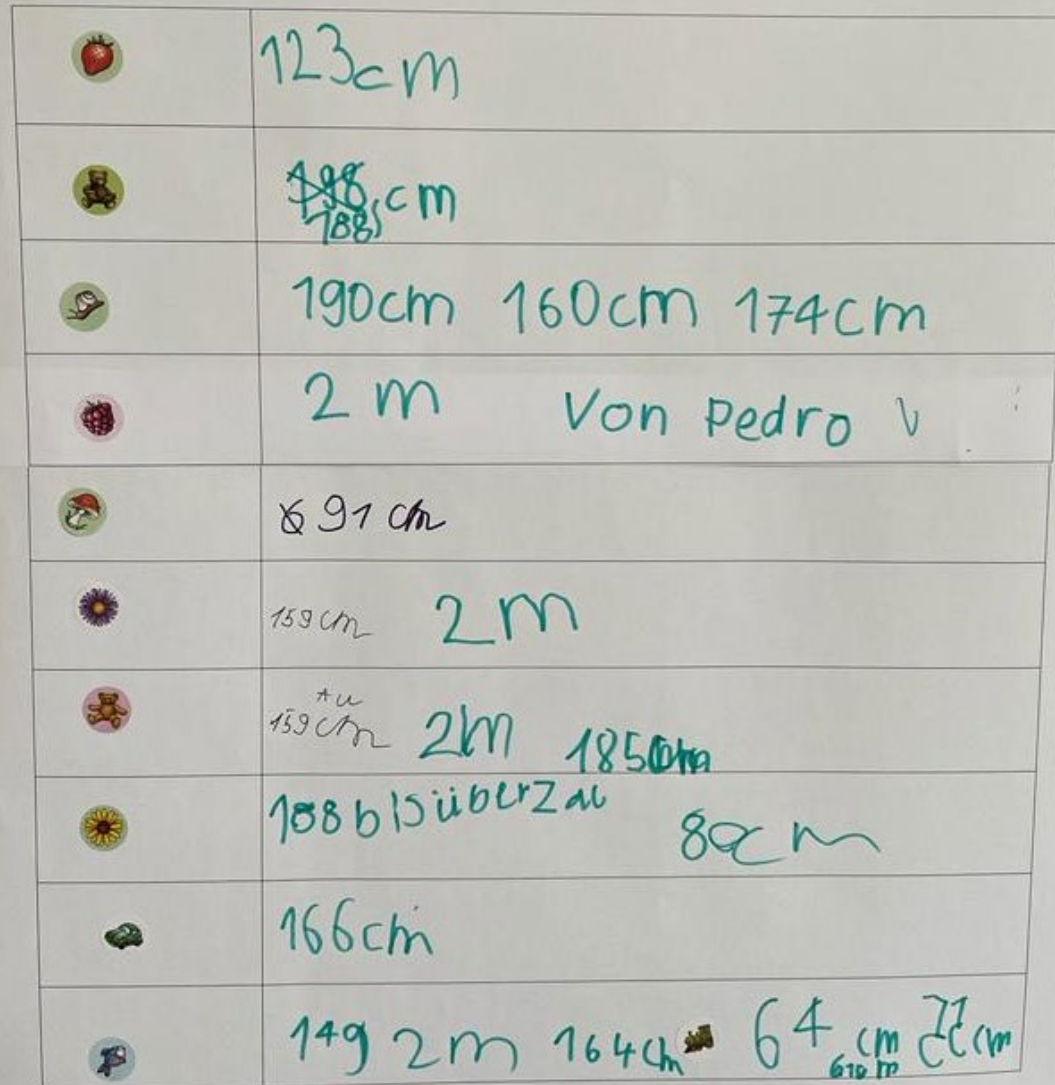 123cm
188 cm
190cm 160cm 174cm
2 m Von Pedro
91 cm
159 cm 2m
159 cm 2m 185cm
188 bis überzal 80cm
166cm
149 2m 164cm 64 cm cm